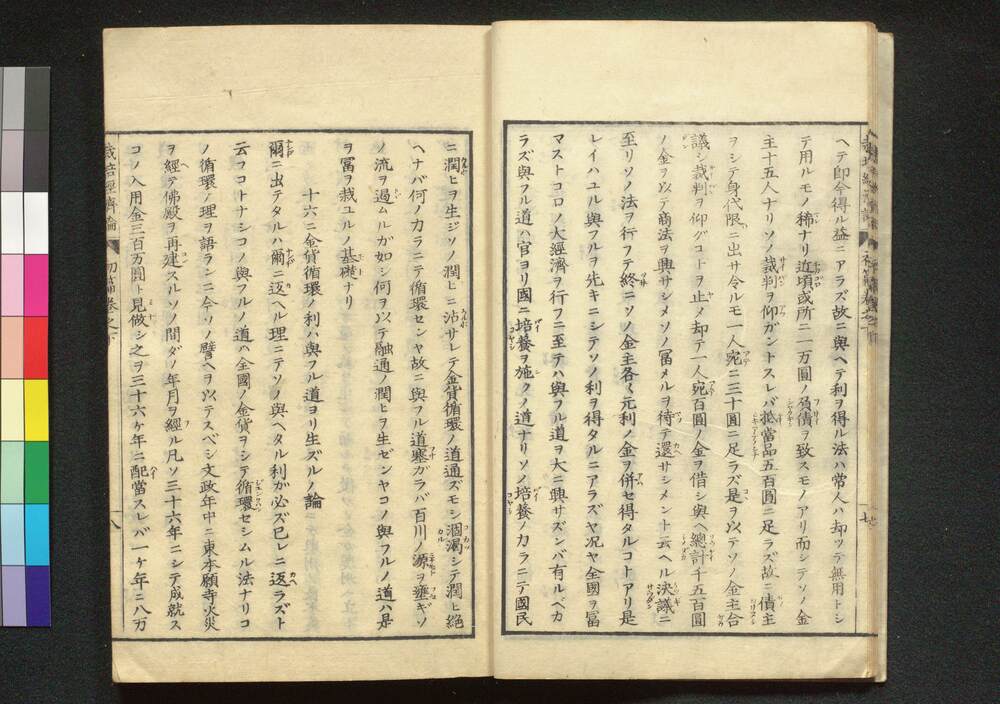 ヘテ即今得ル益ニアラズ故ニ與ヘテ利ヲ得ル法ハ常人ハ却ツテ無用トシ
テ用ルモノ稀ナリ近頃或所ニ一万圓ノ負債ヲ致スモノアリ而シテソノ金
主十五人ナリソノ裁判ヲ仰ガントスレバ抵當品五百圓ニ足ラズ故ニ債主
ヲシテ身代限ニ出サ令ルモ一人宛ニ三十圓ニ足ラズ是ヲ以テソノ金主合
議シ裁判ヲ仰グコトヲ止メ却テ一人宛百圓ノ金ヲ借シ與ヘ總計千五百圓
ノ金ヲ以テ商法ヲ興サシメソノ冨メルヲ待テ還サシメント云ヘル決議ニ
至リソノ法ヲ行フテ終ニソノ金主各〱元利ノ金ヲ併セ得タルコトアリ是
レイハユル與フルヲ先キニシテソノ利ヲ得タルニアラズヤ况ヤ全國ヲ冨
マストコロノ大經濟ヲ行フニ至テハ與フル道ヲ大ニ興サズンバ有ルベカ
ラズ與フル道ハ官ヨリ國ニ培養ヲ施クノ道ナリソノ培養ノカラニテ國民
ニ潤ヒヲ生ジソノ潤ヒニ沾サレテ金貨循環ノ道通ズモシ涸渇シテ潤ヒ絶
ヘナバ何ノカラニテ循環センヤ故ニ與フル道塞ガラバ百川ノ源ヲ壅ギソ
ノ流ヲ過ムルガ如シ何ヲ以テ融通ノ潤ヒヲ生ゼンヤコノ與フルノ道ハ是
ヲ冨ヲ栽ユルノ基礎ナリ
十六ニ金貨循環ノ利ハ與フル道ヨリ生ズルノ論
爾ニ出テタルハ爾ニ返ヘル理ニテソノ與ヘタル利ガ必ズ已レニ返ラズト
云フコトナシコノ與フルノ道ハ全國ノ金貨ヲシテ循環セシムル法ナリコ
ノ循環ノ理ヲ語ランニ今ソノ譬ヘヲ以テスベシ文政年中ニ東本願寺火災
ヲ經テ佛殿ヲ再建スルソノ間ダノ年月ヲ經ル凡ソ三十六年ニシテ成就ス
コノ入用金三百万圓ト見做シ之ヲ三十六ケ年ニ配當スレバ一ケ年ニ八万
栽培經濟論 初篇卷之下 八